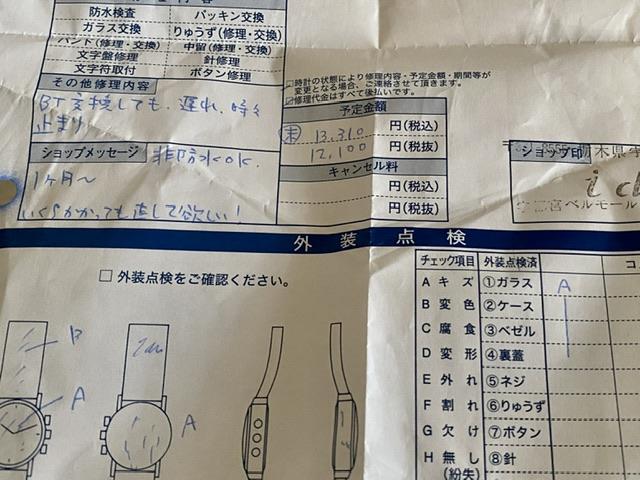 防水検査 パッキン交換
ガラス交換 りゅうず(修理・交換)
バンド(修理・交換) 中留(修理・交換)
文字盤修理 針修理
文字符取付 ボタン修理
その他修理内容
BT交換しても、遅れ、時々
止まり
ショップメッセージ 非防水OK.
1ヶ月〜
いくらかかっても直して欲しい!
□時計の状態により修理内容・予定金額・期間等が
変更となる場合、ご連絡させて頂きます。
修理代金はすべて後払いです。
予定金額
13,310 円(税込)
12,100 円(税抜)
キャンセル料
円(税込)
円(税抜)
ショップ印
宇都宮ベルモール
外装点検
□ 外装点検をご確認ください。
B
A
A
チェック項目 外装点検済
A キズ ①ガラス A
B 変色 ②ケース
C 腐食 ③ベゼル
D 変形 ④裏蓋
E 外れ ⑤ネジ
F 割れ ⑥りゅうず
G 欠け ⑦ボタン
H 無し ⑧針
(紛失)